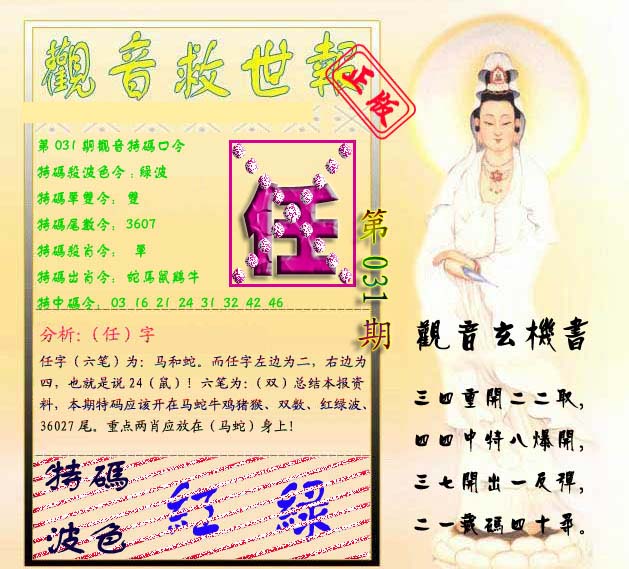 觀音救世報
正版
第031期觀音特碼口令
特碼殺波色令:綠波
特碼單雙令: 雙
特碼尾數令: 3607
特碼殺肖令: 單
特碼出肖令: 蛇馬鼠鷄牛
特中碼令: 03 16 21 24 31 32 42 46
任
第031期
分析:（任）字
任字（六笔）为：马和蛇。而任字左边为二，右边为
四，也就是说24（鼠）！六笔为:（双）总结本报资
料，本期特码应该开在马蛇牛鸡猪猴、双数、红绿波、
36027尾。重点两肖应放在（马蛇）身上！
特碼
波色
紅 綠
觀音玄機書
三四重開二二取，
四四中特八爆開，
三七開出一反彈，
二一載碼四十尋。